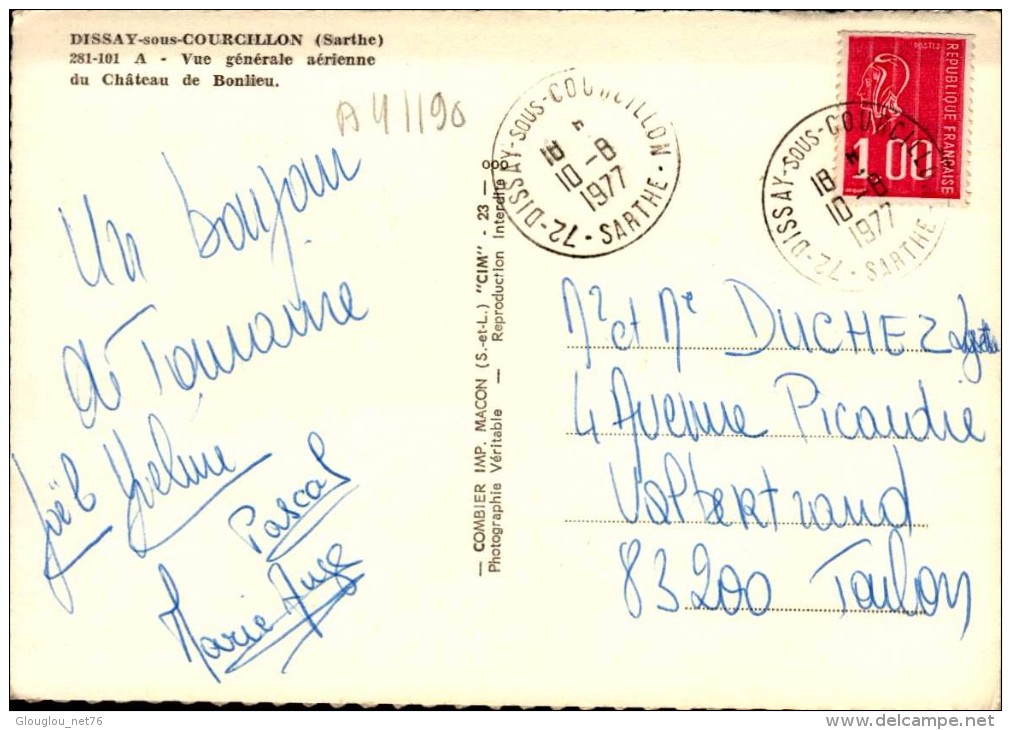 DISSAY-sous-COURCILLON (Sarthe)
281-101 A - Vue générale aérienne
du Château de Bonlieu.
A41190
Un bonjour
de Touraine
Joël Yveline
Pascal
Marie Ange
— COMBIER IMP. MACON (S.-et-L.) "CIM" - 23 — 000
Photographie Véritable — Reproduction Interdite
72-DISSAY-sous-COURCILLON - SARTHE
18
10 -8
1977
POSTES
REPUBLIQUE FRANÇAISE
1.00
72-DISSAY-sous-COURCILLON - SARTHE
18
10 -8
1977
Mr et Me DUCHEZ
4 Avenue Picardie
Valbertrand
83200 Toulon
Glouglou_net76
delcampe.net